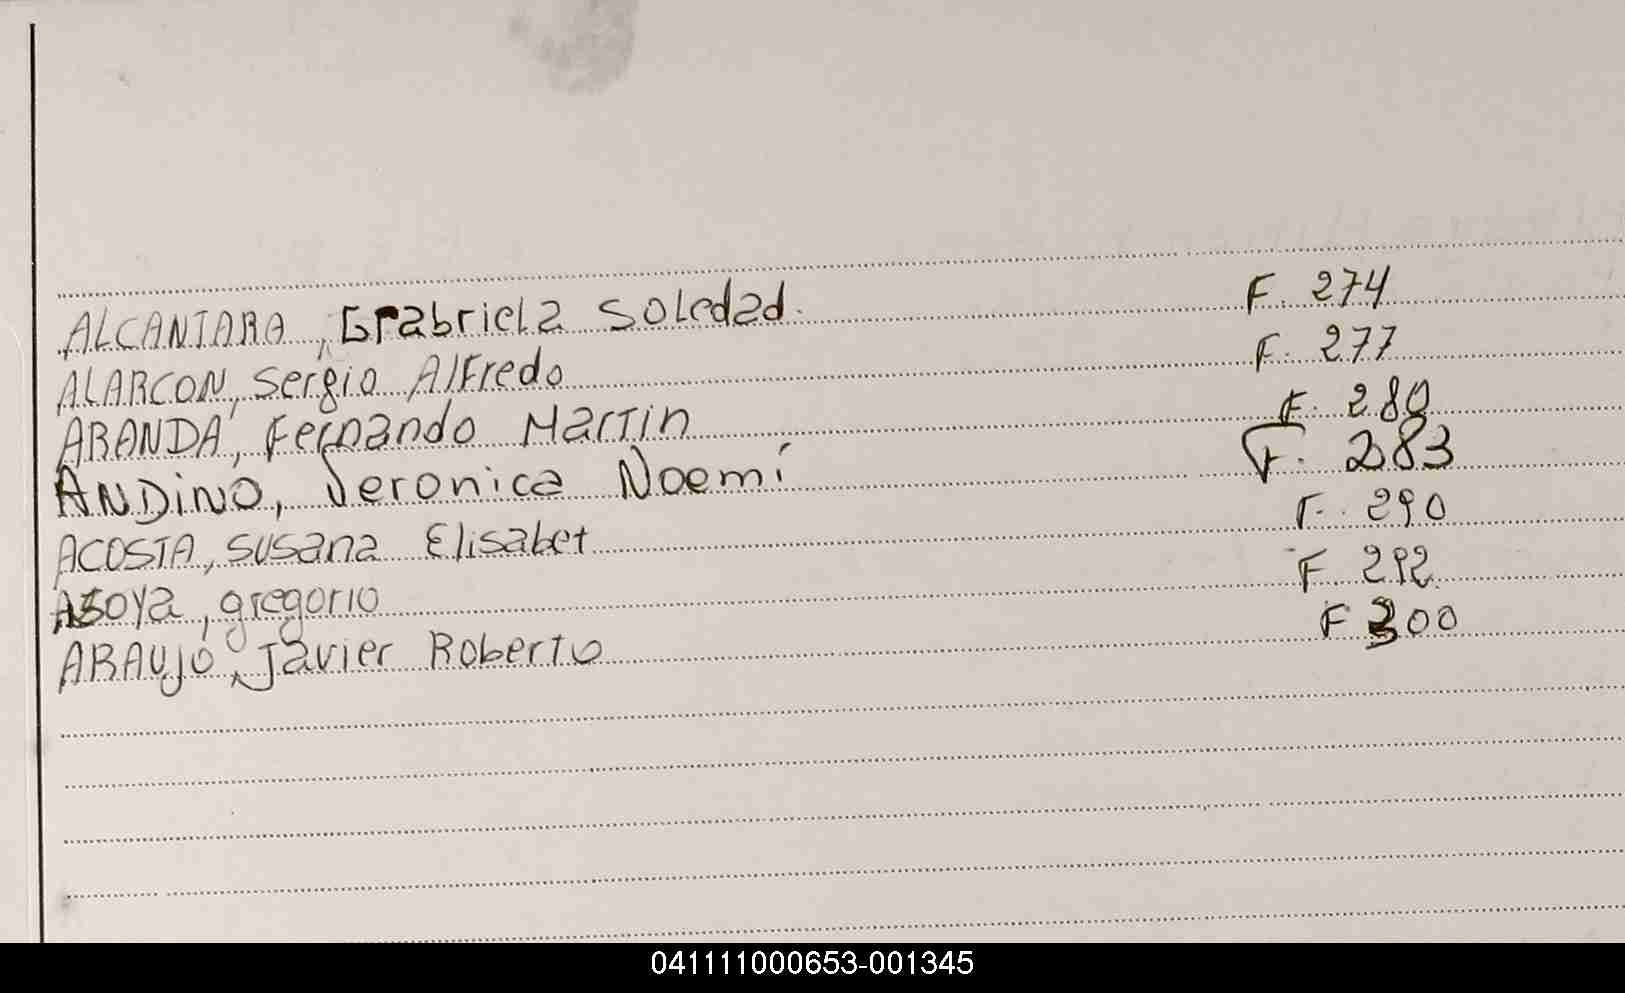 ALCANTARA, Grabriela Soledad. F. 274
ALARCON, Sergio Alfredo F. 277
ARANDA, Fernando Martin F. 280
ANDINO, Veronica Noemí F. 283
ACOSTA, Susana Elisabet F. 290
gregorio F 292
ARAUJO, Javier Roberto F 300
041111000653-001345